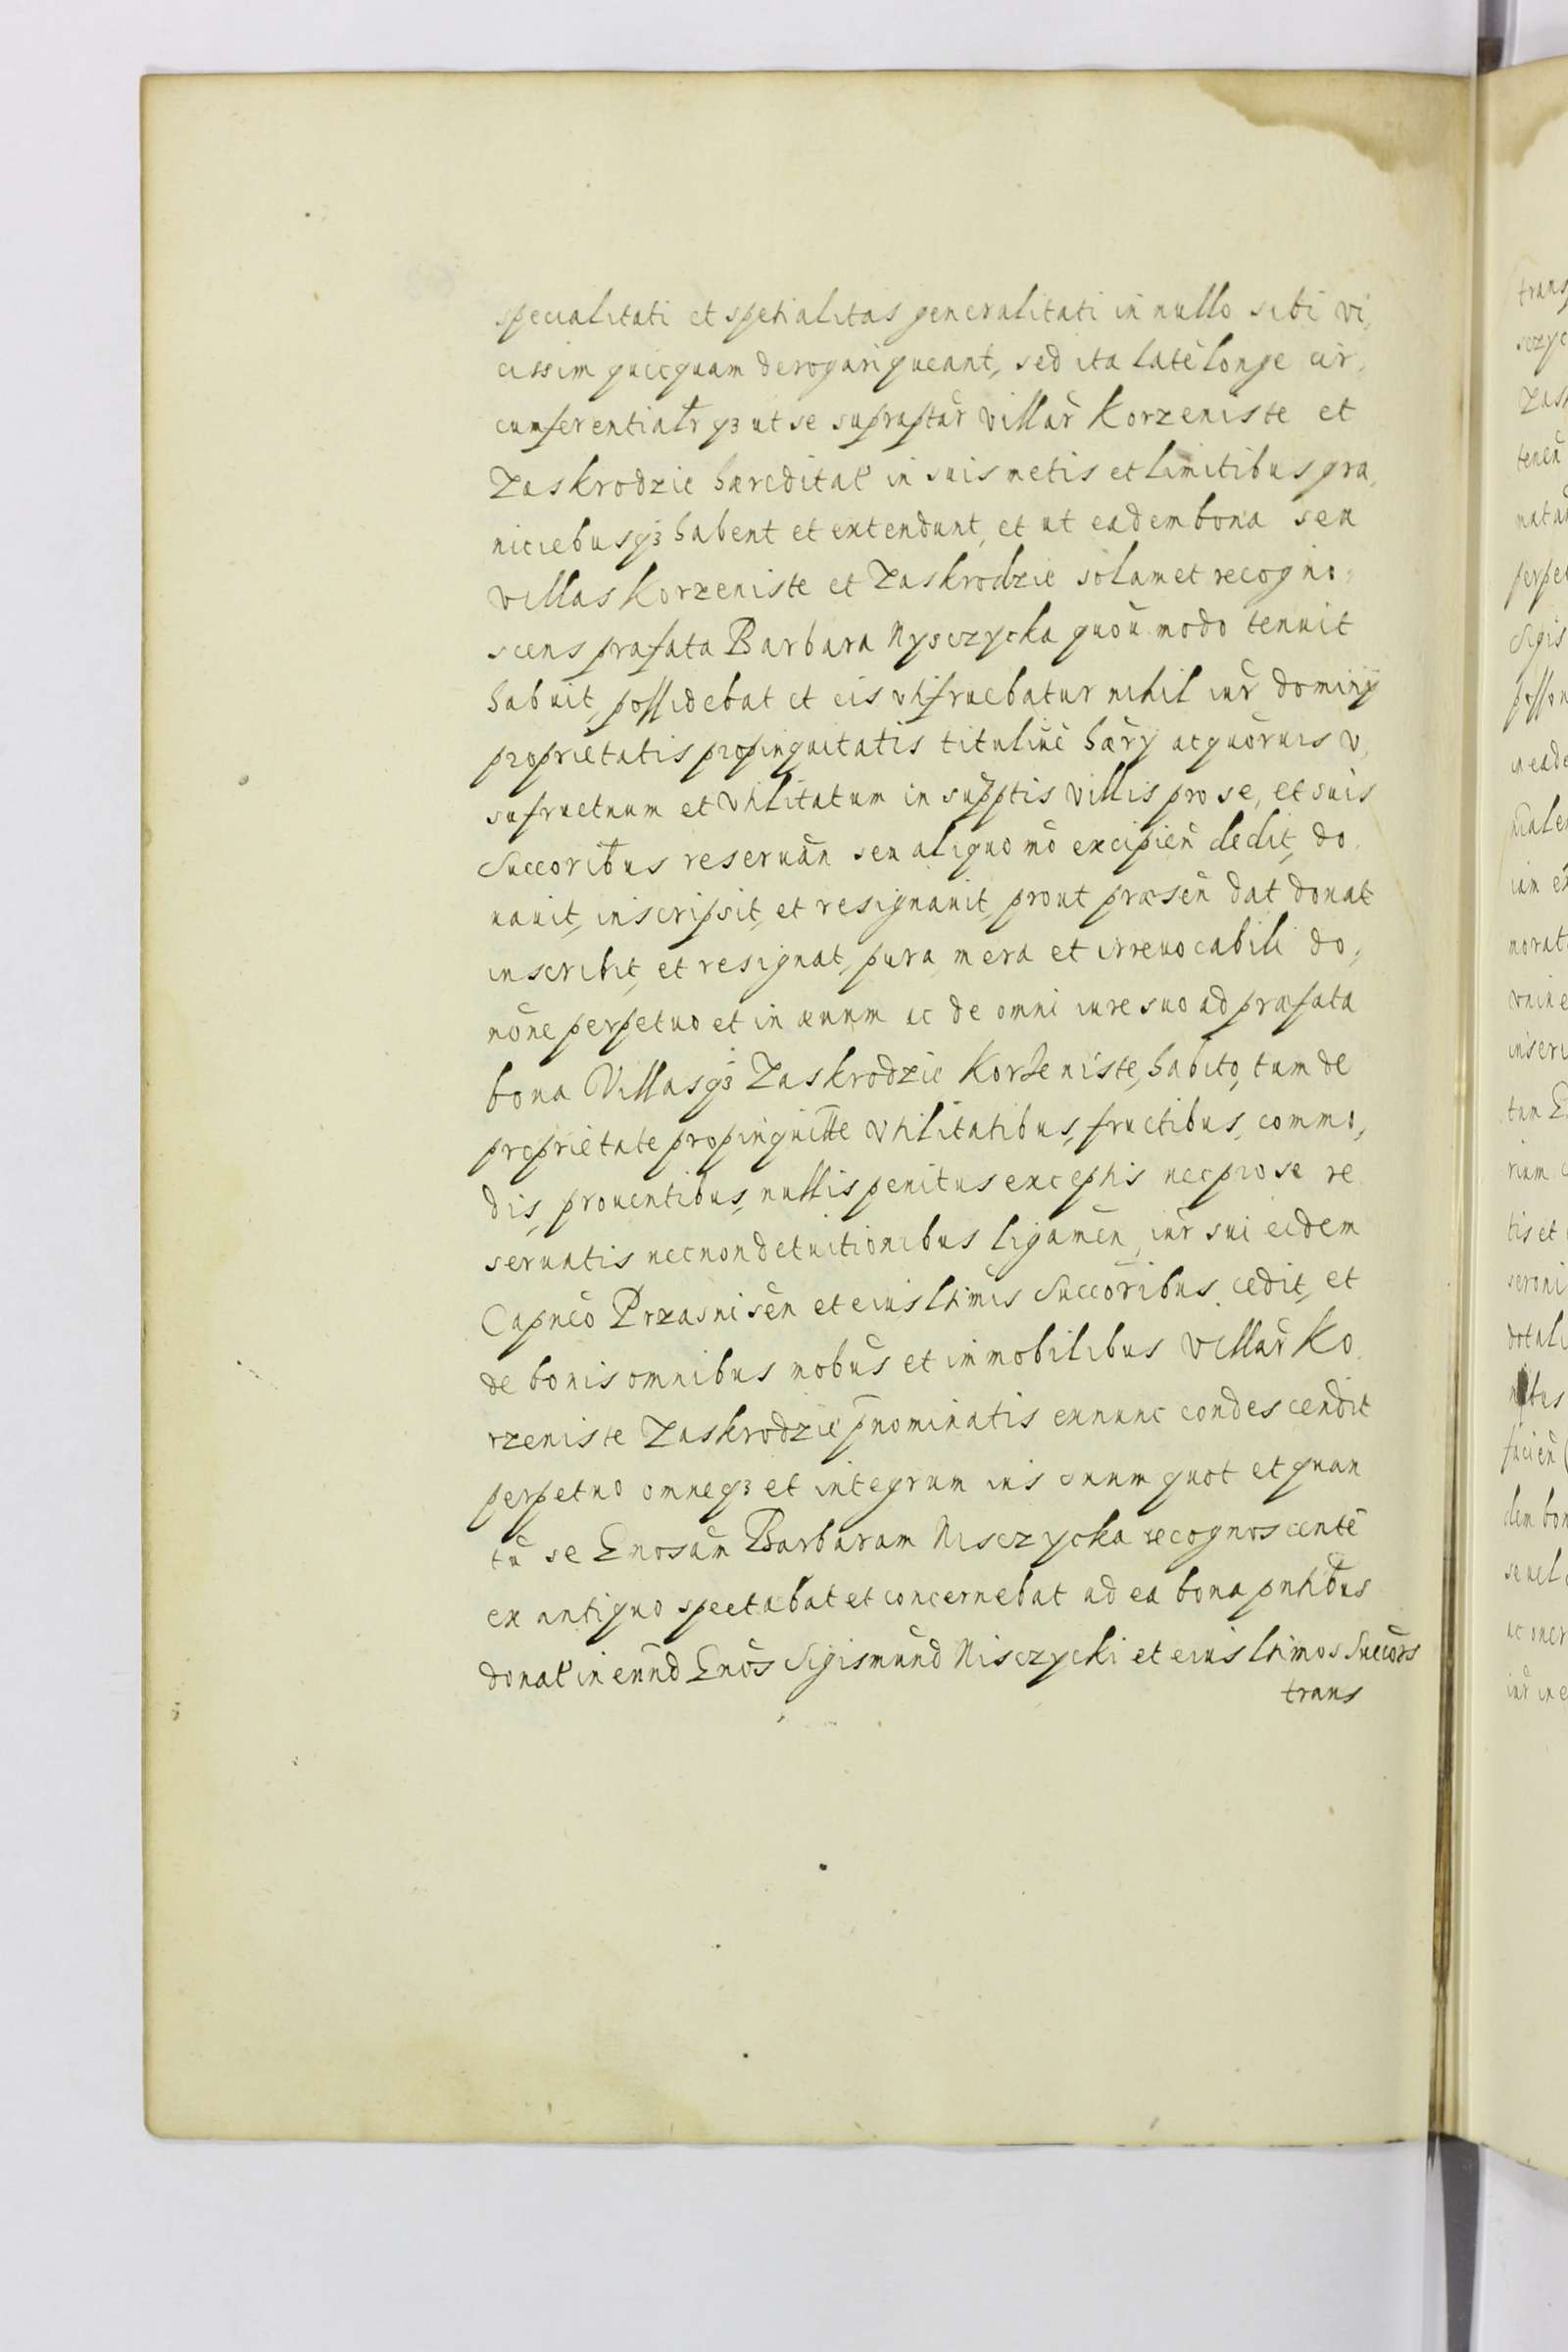 specialitati et spetialitas generalitati in nullo sibi vi,
cissim quicquam derogari queant, sed ita late longe cir,
cumferentialr̄ qȝ ut se supraptar̄ villar̄ Korzeniste et
Zaskrodzie hæreditat̄ in suis metis et limitibus gra,
niciebusqȝ habent et extendunt, et ut eadem bona seu
villas Korzeniste et Zaskrodzie solamet recogno,
scens præfata Barbara Nysczycka quou̅modo tenuit
habuit, possidebat et eis utifruebatur nihil iur̄ dominij
proprietatis propinquitatis tituliue̅ hær̄y acquor̄uis v,
sufructuum et vtilitatum in supptis villis pro se, et suis
Succorib̄us reseruan̄ seu aliquo mō excipien̄ dedit, do,
nauit, inscripsit, et resignauit, prout præsen̄ dat donat
inscribit, et resignat, pura mera et irreuocabili do,
nōne perpetuo et in æuum ac de omni iure suo ad præfata
bona Villasqȝ Zaskrodzie Korzeniste, habito, tum de
proprietate propinquitt̄e vtilitatibus, fructibus, commo,
dis, prouentibus, nullis penitus exceptis nec pro se re
seruatis necnon de tuitionibus ligamen̄, iur̄ sui eidem
Capneō Przasnisen̄ et eius ltimis̄ Succor̄ibus cedit, et
de bonis omnibus mobus̄ et immobilibus villar̄ Ko
rzeniste Zaskrodzie p̄nominatis exnunc condescendit
perpetuo omneqȝ et integrum ius suum quot et quan
tū se Gnosam̄ Barbaram Nisczycka recognoscente̅
ex antiquo spectabat et concernebat ad ea bona pntib̄us
donat̄ in eun̄d Gnōs Sigismun̄d Nisczycki et eius ltimos Succōrs
trans